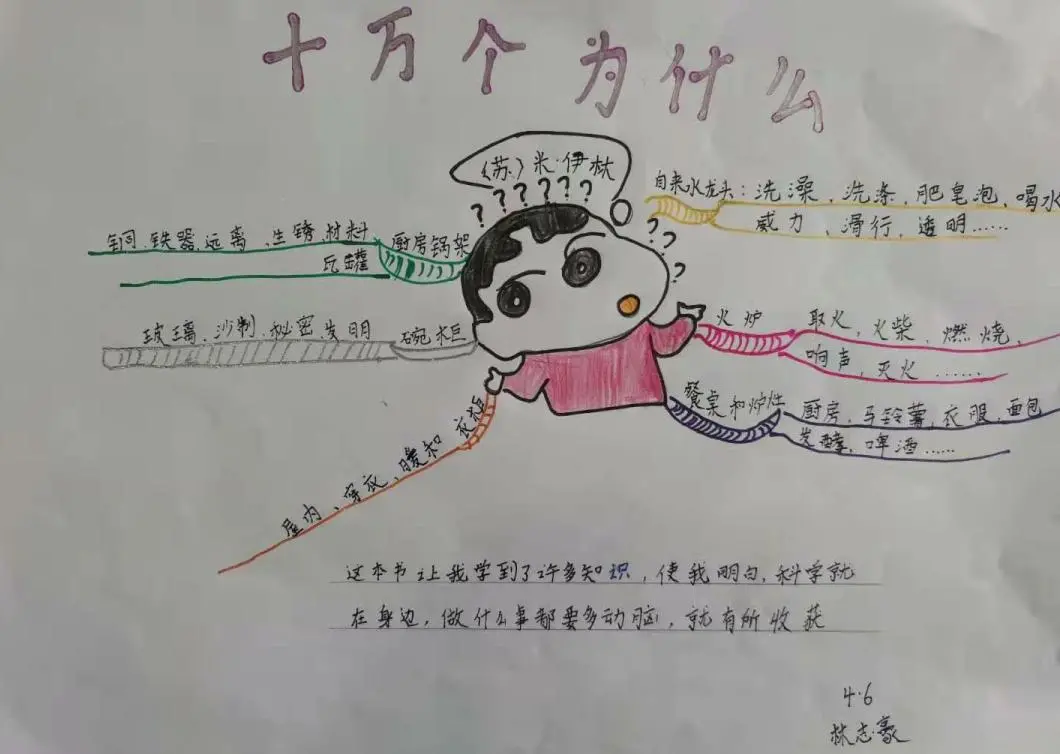 十万个为什么
(苏)米·伊林
? ? ? ? ? ?
? ? ? ?
自来水龙头：洗澡、洗涤、肥皂泡、喝水
威力、滑行、透明……
铜、铁器、远离、生锈、材料
瓦罐
厨房锅架
玻璃、沙制、秘密、发明
碗柜
火炉
取火、火柴、燃烧、
响声、灭火……
餐桌和炉灶
厨房、马铃薯、衣服、面包
发酵、啤酒……
衣柜
屋内、穿衣、暖和
这本书让我学到了许多知识，使我明白，科学就
在身边，做什么事都要多动脑，就有所收获
4·6
林志豪